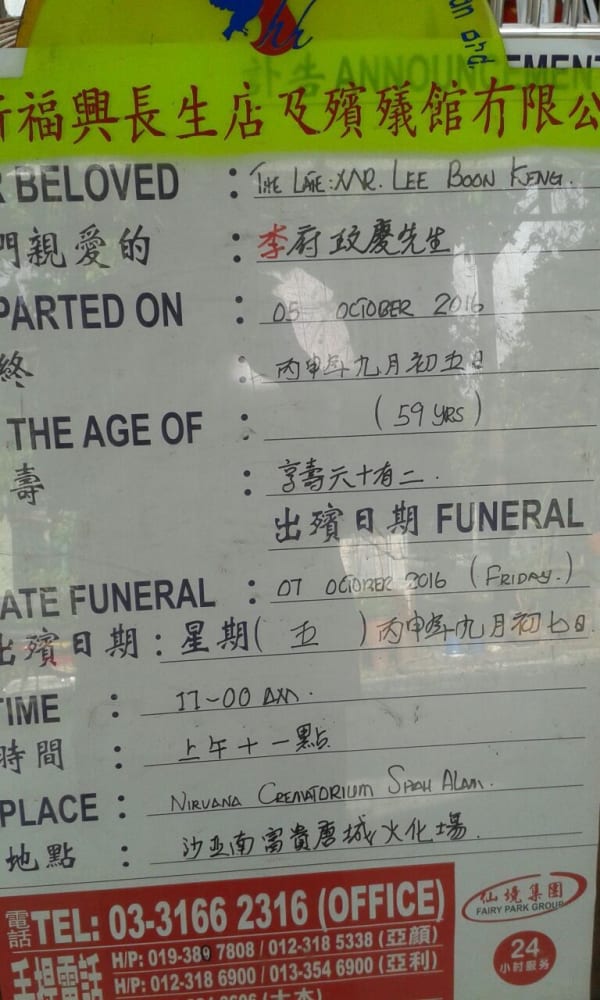 訃告 ANNOUNCEMENT
福興長生店及殯儀館有限公
BELOVED : THE LATE: MR. LEE BOON KENG.
們親愛的 : 李府政慶先生
PARTED ON : 05 OCTOBER 2016
終 : 丙申年九月初五日
THE AGE OF : (59 YRS)
壽 : 享壽六十有二.
出殯日期 FUNERAL
ATE FUNERAL : 07 OCTOBER 2016 (FRIDAY.)
出殯日期 : 星期( 五 ) 丙申年九月初七日
TIME : 11~00 AM.
時間 : 上午十一點
PLACE : NIRVANA CREMATORIUM SHAH ALAM.
地點 : 沙亚南富貴唐城火化場.
電話 TEL: 03-3166 2316 (OFFICE)
手提電話 H/P: 019-389 7808 / 012-318 5338 (亞顏)
H/P: 012-318 6900 / 013-354 6900 (亞利)
仙境集團
FAIRY PARK GROUP
24
小时服务